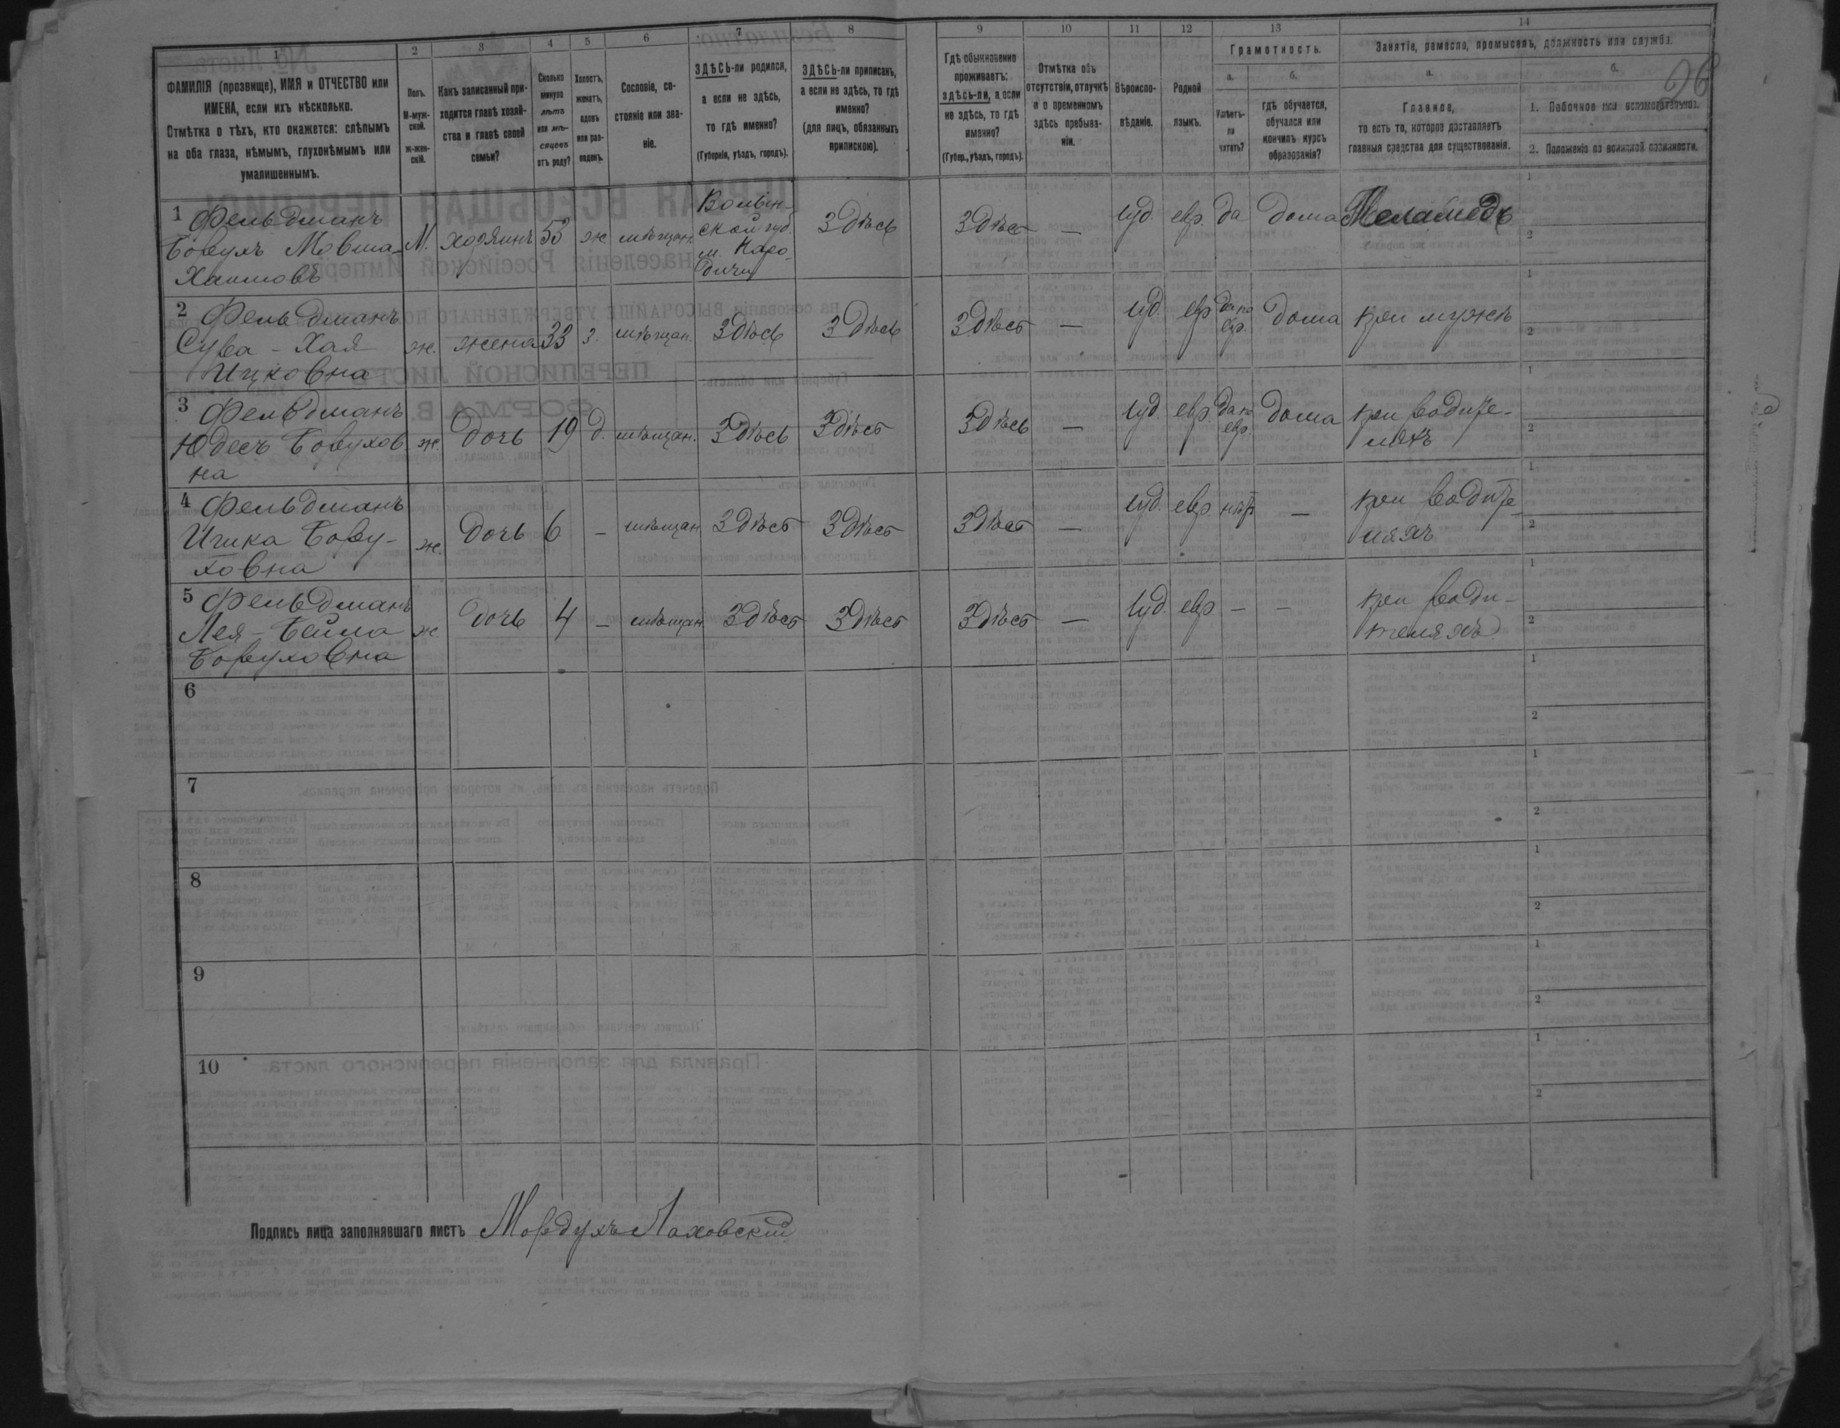 1 2 3 4 5 6 7 8 9 10 11 12 13 14
ФАМИЛІЯ (прозвище), ИМЯ и ОТЧЕСТВО или
ИМЕНА, если ихъ нѣсколько.
Отмѣтка о тѣхъ, кто окажется: слѣпымъ
на оба глаза, нѣмымъ, глухонѣмымъ или
умалишеннымъ.
Полъ.
М-муж-
ской.
ж-жен-
скій.
Какъ записанный при-
ходится главѣ хозяй-
ства и главѣ своей
семьи?
Сколько
минуло
лѣтъ
или мѣ-
сяцевъ
отъ роду?
Холостъ,
женатъ,
вдовъ
или раз-
веденъ.
Сословіе, со-
стояніе или зва-
ніе.
ЗДѢСЬ-ли родился,
а если не здѣсь,
то гдѣ именно?
(Губернія, уѣздъ, городъ).
ЗДѢСЬ-ли приписанъ,
а если не здѣсь, то гдѣ
именно?
(для лицъ, обязанныхъ
припискою).
Гдѣ обыкновенно
проживаетъ:
здѣсь-ли, а если
не здѣсь, то гдѣ
именно?
(Губер., уѣздъ, городъ).
Отмѣтка объ
отсутствіи, отлучкѣ
и о временномъ
здѣсь пребыва-
ніи.
Вѣроиспо-
вѣданіе.
Родной
языкъ.
Грамотность.
а.
Умѣетъ-
ли
читать?
б.
гдѣ обучается,
обучался или
кончилъ курсъ
образованія?
Занятіе, ремесло, промыселъ, должность или служба.
а.
Главное,
то есть то, которое доставляетъ
главныя средства для существованія.
б.
1. Побочное или вспомогательное.
2. Положеніе по воинской повинности.
26
1 Фельдманъ
Борухъ Мовша-
Хаимовъ
М. хозяинъ 53 ж мѣщан.
Волын-
ской губ.
м. Наро-
дичи
Здѣсь Здѣсь — Іуд. евр. да дома Меламедъ
2 Фельдманъ
Сура - Хая
Ицковна
ж. жена 33 з. мѣщан. Здѣсь Здѣсь Здѣсь — Іуд. евр. да по
евр.
дома при мужѣ
3 Фельдманъ
Юдесъ Борухов
на
ж. дочь 19 д. мѣщан. Здѣсь Здѣсь Здѣсь — Іуд. евр. да по
евр.
дома при родите-
ляхъ
4 Фельдманъ
Бору-
ховна
ж. дочь 6 — мѣщан. Здѣсь Здѣсь Здѣсь — Іуд. евр. нѣт — при родите-
ляхъ
5 Фельдманъ
Лея - Бейла
Боруховна
ж. дочь 4 — мѣщан. Здѣсь Здѣсь Здѣсь — Іуд. евр — — при роди-
теляхъ
6
7
8
9
10
Подпись лица заполнявшаго листъ Мордухъ Лаховскій